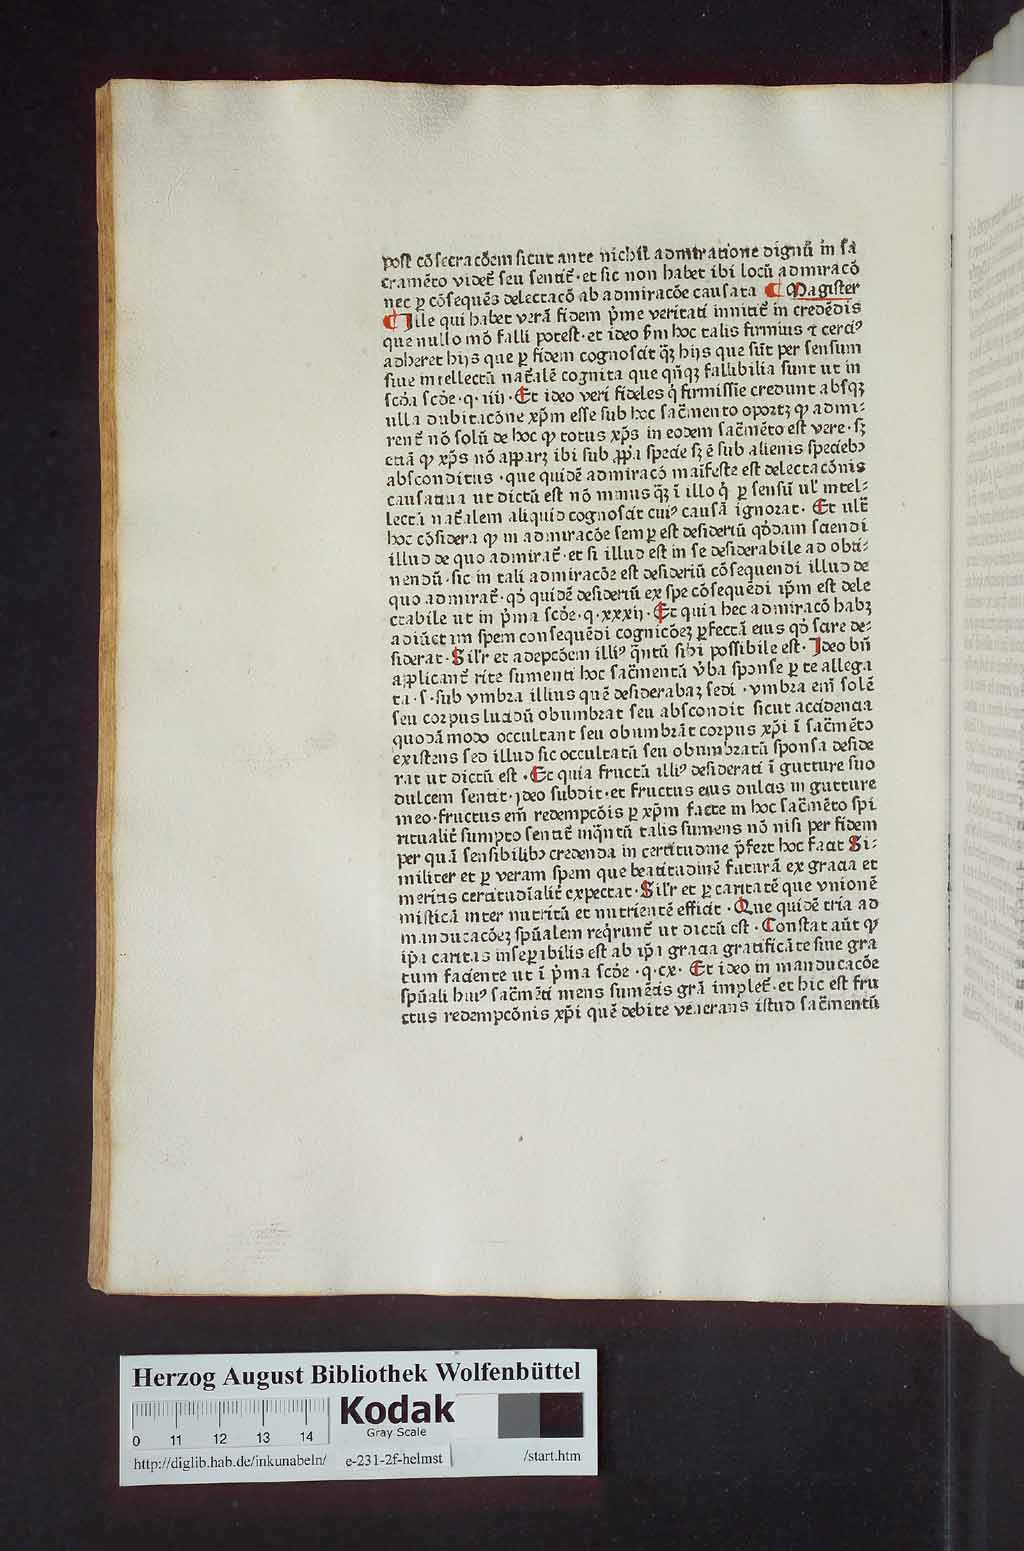 post cōsecracōem sicut ante nichil admiratione dignū in sa
cramēto videt᷑ seu sentit᷑ · et sic non habet ibi locū admiracō
nec ꝑ cōsequēs delectacō ab admiracōe causata ¶ Magister
¶ Ille qui habet verā fidem p̄me veritati innitit᷑ in credēdis
que nullo mō falli potest · et ideo s̄m hoc talis firmius ⁊ cerciꝰ
adheret hijs que ꝑ fidem cognoscit q̄ꝫ hijs que sūt per sensum
siue intellectū nat᷑alē cognita que qn̄qꝫ fallibilia sunt ut in
scd̄a scd̄e · q · iiij · Et ideo veri fideles q̇ firmissīe credunt absqꝫ
ulla dubitacōne xp̄m esse sub hoc sac̄mento oportꝫ ꝙ admi-
rent᷑ nō solū de hoc ꝙ totus xp̄s in eodem sac̄mēto est vere · sꝫ
eciā ꝙ xp̄s nō apparꝫ ibi sub ꝓp̄a specie sꝫ ē sub alienis speciebꝫ
absconditus · que quidē admiracō maīfeste est delectacōnis
causatiua ut dictū est nō minus q̄ꝫ ī illo q̇ ꝑ sensū ul᷑ intel-
lectū nat᷑alem aliquid cognoscit cuiꝰ causā ignorat · Et ult᷑
hoc cōsidera ꝙ in admiracōe semꝑ est desideriū qd̄dam sciendi
illud de quo admirat᷑ · et si illud est in se desiderabile ad obti-
nendū · sic in tali admiracōe est desideriū cōsequendi illud de
quo admirat᷑ · qd̄ quidē desideriū ex spe cōsequēdi ip̄m est dele
ctabile ut in p̄ma scd̄e · q · xxxij · Et quia hec admiracō habꝫ
adiūctam spem consequēdi cognicōeꝫ ꝑfectā eius qd̄ scire de-
siderat · Sil᷑r et adepcōem illiꝰ q̄ntū sibi possibile est · Ideo bn̄
applicant᷑ rite sumenti hoc sac̄mentū v̄ba sponse ꝑ te allega
ta · s · sub vmbra illius quē desiderabaꝫ sedi · vmbra em̄ solē
seu corpus lucidū obumbrat seu abscondit sicut accidencia
quodāmodo occultant seu obumbrāt corpus xp̄i ī sac̄mēto
existens sed illud sic occultatū seu obumbratū sponsa deside
rat ut dictū est · Et quia fructū illiꝰ desiderati ī gutture suo
dulcem sentit · ideo subdit · et fructus eius dulcis in gutture
meo · fructus em̄ redempcōis ꝑ xp̄m facte in hoc sac̄mēto spi
ritualit᷑ sumpto sentit᷑ inq̄ntū talis sumens nō nisi per fidem
per quā sensibilibꝫ credenda in certitudine p̄fert hoc facit Si-
militer et ꝑ veram spem que beatitudinē futurā ex gracia et
meritis certitudīalit᷑ expectat · Sil᷑r et ꝑ caritatē que vnionē
misticā inter nutritū et nutrientē efficit · Que quidē tria ad
manducacōeꝫ spūalem reqrunt᷑ ut dictū est · Constat aūt ꝙ
ip̄a caritas inseꝑabilis est ab ip̄a gracia gratificāte siue gra
tum faciente ut ī p̄ma scd̄e · q · cx · Et ideo in manducacōe
spūali huiꝰ sac̄mēti mens sumētis grā implet᷑ · et hic est fru
ctus redempcōnis xp̄i quē debite venerans istud sac̄mentū
Herzog August Bibliothek Wolfenbüttel
Kodak
Gray Scale
0 11 12 13 14
http://diglib.hab.de/inkunabeln/ e-231-2f-helmst /start.htm